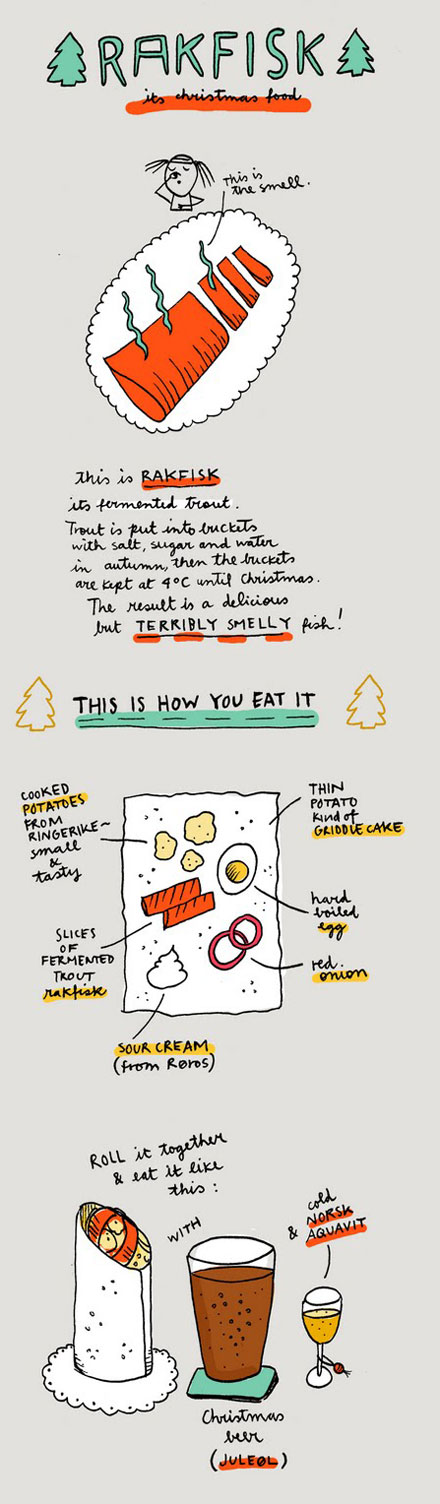 RAKFISK
its christmas food
This is
the smell.
this is RAKFISK
its fermented trout.
Trout is put into buckets
with salt, sugar and water
in autumn, then the buckets
are kept at 4°C until Christmas.
The result is a delicious
but TERRIBLY SMELLY fish!
THIS IS HOW YOU EAT IT
COOKED
POTATOES
FROM
RINGERIKE~
small
&
tasty
THIN
POTATO
kind of
GRIDDLE CAKE
hard
boiled
egg
SLICES
OF
FERMENTED
TROUT
rakfisk
red
onion
SOUR CREAM
(from Røros)
ROLL it together
& eat it like
this:
WITH
& cold
NORSK
AQUAVIT
Christmas
beer
(JULEØL)